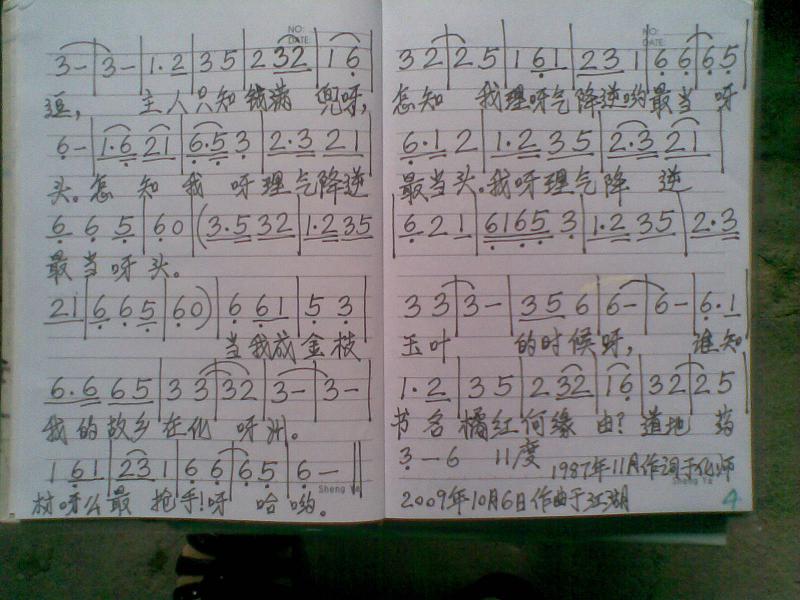 3 – | 3 – | 1· 2 | 3 5 | 2 32 | 1 6 |
3 2 | 2 5 | 1 61 | 23 1 | 6 6 | 6 5
逗， 主人只知钱满 兜呀，
怎知 我理呀气降逆哟最当 呀
6 – | 1·6 21 | 6·5 3 | 2·3 21 |
6·1 2 | 1·2 35 | 2·3 21 |
头。怎 知 我 呀理气降逆
最当头。我呀理气降 逆
6 6 5 | 6 0 | (3·5 32 | 1·2 35
6 2 1 | 6165 3 | 1·2 35 | 2·3
最当呀头。
21 | 6 65 | 60) | 6 61 | 5 3 |
3 3 | 3 – | 35 6 | 6 – | 6 – | 6·1
当我成金枝
玉叶 的时候呀， 谁知
6·6 65 | 3 3 | 32 | 3 – | 3 – |
1·2 | 3 5 | 2 32 | 16 | 3 2 | 2 5
我的故乡在化 呀州。
节名橘红何缘 由？道地 药
1 61 | 23 1 | 6 6 | 6 5 | 6 – ‖
3 – 6 11度 1987年11月作词于化师
材呀么最 抢手！呀 哈 哟。
2009年10月6日作曲于江湖
NO:
DATE:
NO:
DATE:
Sheng Ya
Sheng Ya
4